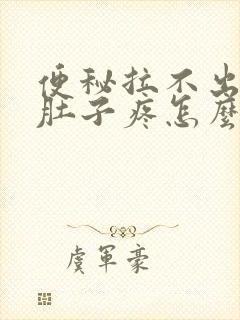 便秘拉不出
肚子疼怎麼
虞軍豪